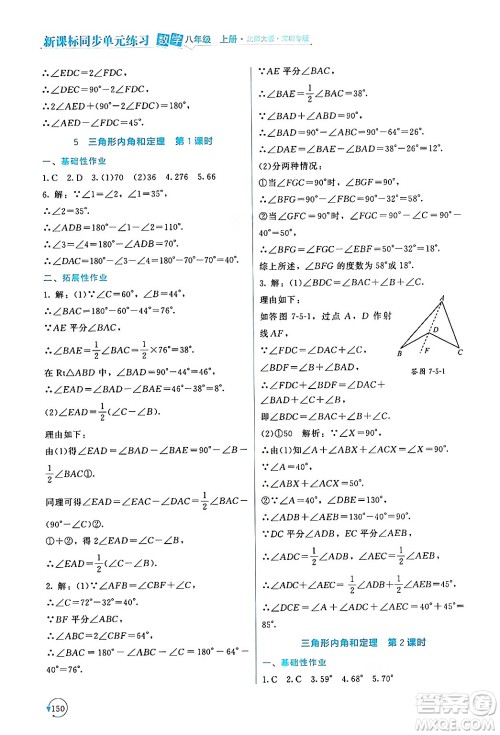 新课标同步单元练习 数学 八年级 上册·北师大版·深圳专版
∴∠EDC=∠BAC.
∴∠EDC=90°-∠C.
∴∠EDC+∠C=90°.
∴∠DEC=180°-(∠EDC+∠C)=180°-90°=90°.
5 三角形内角和定理 第1课时
一、基础性作业
1. C 2. D 3. (1)70 (2)36 4. 276 5. 66
6. 解：∵∠1=∠2,∠1=35°,
∴∠2=35°.
∴∠BAD=180°-∠1-∠2=110°.
∴∠3+∠4=180°-∠BAD=70°.
∵∠3=∠4,∴∠3=∠4=35°.
∴∠DAC=180°-∠3-∠4=110°.
二、拓展性作业
1. 解：(1)∵∠C=60°,∠B=44°,
∴∠BAC=180°-60°-44°=76°.
∵AE 平分∠BAC,
∴∠BAE=1/2∠BAC=1/2×76°=38°.
在 Rt△ABD 中,∠BAD=90°-∠B=90°-44°=46°,
∴∠EAD=∠BAD-∠BAE=46°-38°=8°.
(2)∠EAD=1/2(∠C-∠B).
理由如下：
由(1)得∠EAD=∠BAD-∠BAE=90°-∠B-1/2∠BAC①.
同理可得∠EAD=∠CAE-∠CAD=1/2∠BAC-(90°-∠C)②.
①+②,得2∠EAD=∠C-∠B.
∴∠EAD=1/2(∠C-∠B).
2. 解：(1)∵∠AFB=∠AFC+∠C,
∴∠C=∠AFB-∠CBF=32°.
∵BF 平分∠ABC,
∴∠ABC=2∠CBF=80°.
∴∠BAC=180°-∠ABC-∠C=68°.
∵AE 平分∠BAC,
∴∠BAE=1/2∠BAC=34°.
∵AD⊥BC,∴∠ADB=90°.
∴∠BAD=90°-∠ABD=10°.
∴∠DAE=∠BAE-∠BAD=24°.
(2)分两种情况：
①当∠FGC=90°时,∠BGF=90°.
∴∠BFG=90°-∠FBG=90°-40°=50°.
②当∠GFC=90°时,
∠FGC=90°-∠C=90°-32°=58°.
∴∠BFG=∠FGC-∠FBG=58°-40°=18°.
综上所述,∠BFG的度数为58°或18°.
3. 解：(1)∠BDC=∠BAC+∠B+∠C.
理由如下：
如答图 7-5-1, 过点 A, D 作射线 AF.
∵∠FDC=∠DAC+∠C,∠BDF=∠B+∠BAD,
∴∠FDC+∠BDF=∠DAC+∠BAD+∠C+∠B,
即∠BDC=∠BAC+∠B+∠C.
(2)①50 解析：∵∠X=90°,
由(1)知∠A+∠ABX+∠ACX=∠X=90°,
∵∠A=40°,
∴∠ABX+∠ACX=50°.
②∵∠A=40°,∠DBE=130°,
∴∠ADE+∠AEB=130°-40°=90°.
∵DC 平分∠ADB,EC 平分∠AEB,
∴∠ADC=1/2∠ADB,∠AEC=1/2∠AEB.
∴∠ADC+∠AEC=1/2(∠ADB+∠AEB)=45°.
∴∠DCE=∠A+∠ADC+∠AEC=40°+45°=85°.
A
D
B
F
C
答图 7-5-1
三角形内角和定理 第2课时
一、基础性作业
1. C 2. C 3. 59° 4. 55° 5. 70°
150